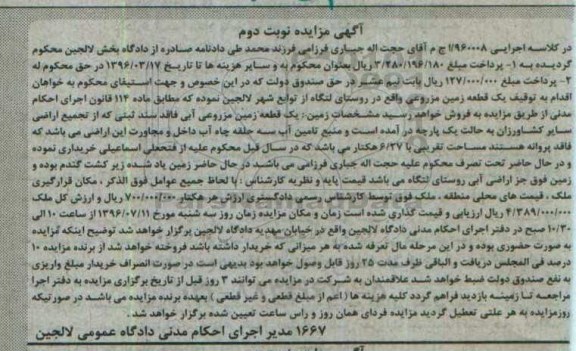 آگهی مزایده نوبت دوم
در کلاسه اجرایی ۹۶۰۰۰۸/ا ج م آقای حجت اله جباری فرزامی فرزند محمد طی دادنامه صادره از دادگاه بخش لالجین محکوم
گردیده به ۱- پرداخت مبلغ ۳/۲۸۰/۱۹۶/۱۸۰ ریال بعنوان محکوم به و سایر هزینه ها تا تاریخ ۱۳۹۶/۰۳/۱۷ در حق محکوم له
۲- پرداخت مبلغ ۱۲۷/۰۰۰/۰۰۰ ریال بابت نیم عشر در حق صندوق دولت که در این خصوص و جهت استیفای محکوم به خواهان
اقدام به توقیف یک قطعه زمین مزروعی واقع در روستای لنگاه از توابع شهر لالجین نموده که مطابق ماده ۱۱۴ قانون اجرای احکام
مدنی از طریق مزایده به فروش خواهد رسید مشخصات زمین: یک قطعه زمین مزروعی آبی فاقد سند ثبتی که از تجمیع اراضی
سایر کشاورزان به حالت یک پارچه در آمده است و منبع تامین آب سه حلقه چاه آب داخل و مجاورت این اراضی می باشد که
فاقد پروانه هستند مساحت تقریبی با ۶/۲۷ هکتار می باشد که در سال قبل محکوم علیه از فتحعلی اسماعیلی خریداری نموده
و در حال حاضر تحت تصرف محکوم علیه حجت اله جباری فرزامی می باشد در حال حاضر زمین یاد شده زیر کشت گندم بوده و
زمین فوق جز اراضی آبی روستای لنگاه می باشد قیمت پایه و نظریه کارشناس: با لحاظ جمیع عوامل فوق الذکر، مکان قرارگیری
ملک، قیمت های محلی منطقه، ملک فوق توسط کارشناس رسمی دادگستری ارزش هر هکتار ۷۰۰/۰۰۰/۰۰۰ ریال و ارزش کل ملک
۴/۳۸۹/۰۰۰/۰۰۰ ریال ارزیابی و قیمت گذاری شده است زمان و مکان مزایده زمان روز سه شنبه مورخ ۱۳۹۶/۰۷/۱۱ از ساعت ۱۰ الی
۱۰/۳۰ صبح در دفتر اجرای احکام مدنی دادگاه لالجین واقع در خیابان مهدیه دادگاه لالجین برگزار خواهد شد توضیح اینکه مزایده
به صورت حضوری بوده و در این مرحله مال تعرفه شده به هر میزانی که خریدار داشته باشد فروخته خواهد شد از برنده مزایده ۱۰
درصد فی المجلس دریافت و الباقی ظرف مدت ۲۵ روز قابل وصول خواهد بود بدیهی است در صورت انصراف خریدار مبلغ واریزی
به نفع صندوق دولت ضبط خواهد شد علاقمندان به شرکت در مزایده می توانند ۳ روز قبل از تاریخ برگزاری مزایده به دفتر اجرا
مراجعه تا زمینه بازدید فراهم گردد کلیه هزینه ها (اعم از مبلغ قطعی و غیر قطعی) بعهده برنده مزایده می باشد در صورتیکه
روز مزایده به هر علتی تعطیل گردید مزایده فردای همان روز و راس ساعت تعیین شده برگزار خواهد شد.
۱۶۶۷ مدیر اجرای احکام مدنی دادگاه عمومی لالجین